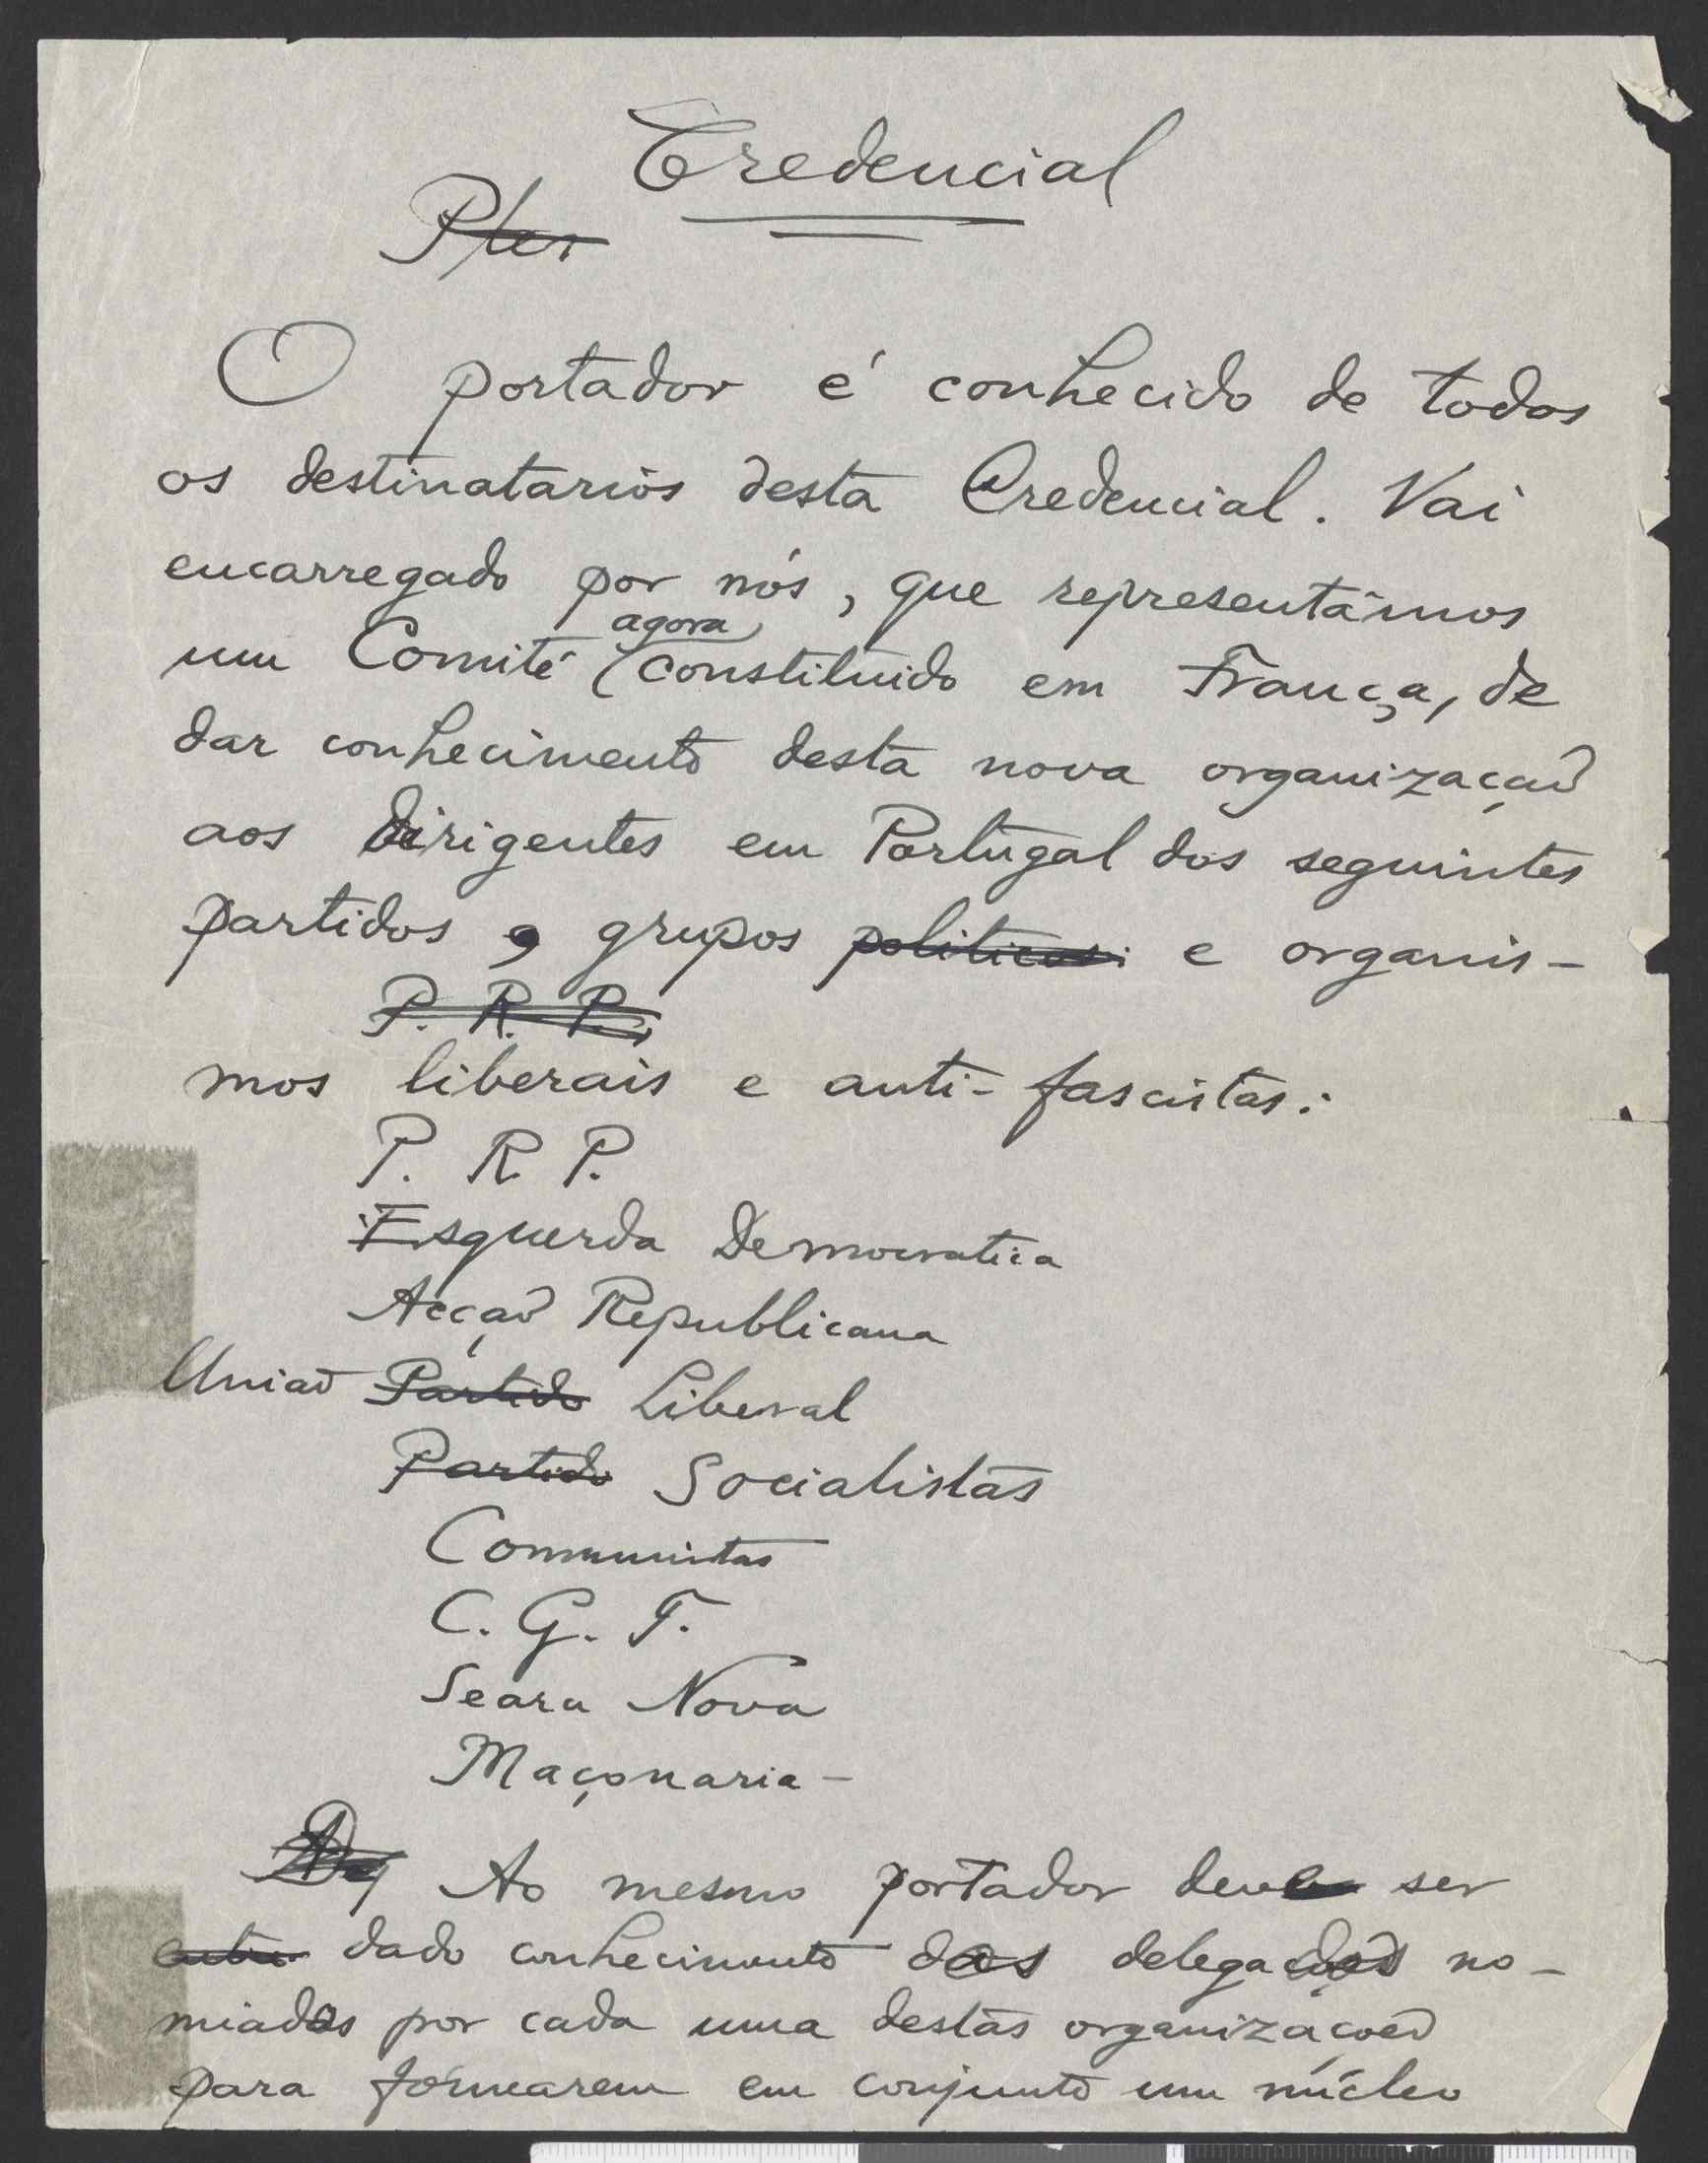 Credencial
O portador é conhecido de todos
os destinatarios desta Credencial. Vai
encarregado por nós, que representâmos
agora
um Comité constituido em França, de
dar conhecimento desta nova organização
aos dirigentes em Portugal dos seguintes
partidos, grupos politicos e organis-
P. R. P.
mos liberais e anti-fascistas:
P. R. P.
Esquerda Democratica
Acção Republicana
União Partido Liberal
Partido Socialistas
Communistas
C. G. T.
Seara Nova
Maçonaria -
Ao mesmo portador deve ser
dado conhecimento dos delegados no-
miados por cada uma destas organizações
para formarem em conjunto um núcleo